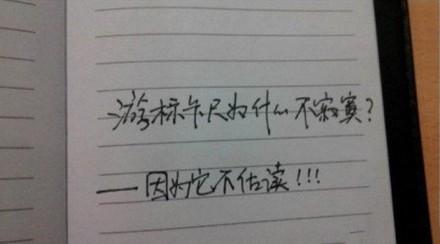 游标卡尺为什么不寂寞？
——因为它不估读!!!